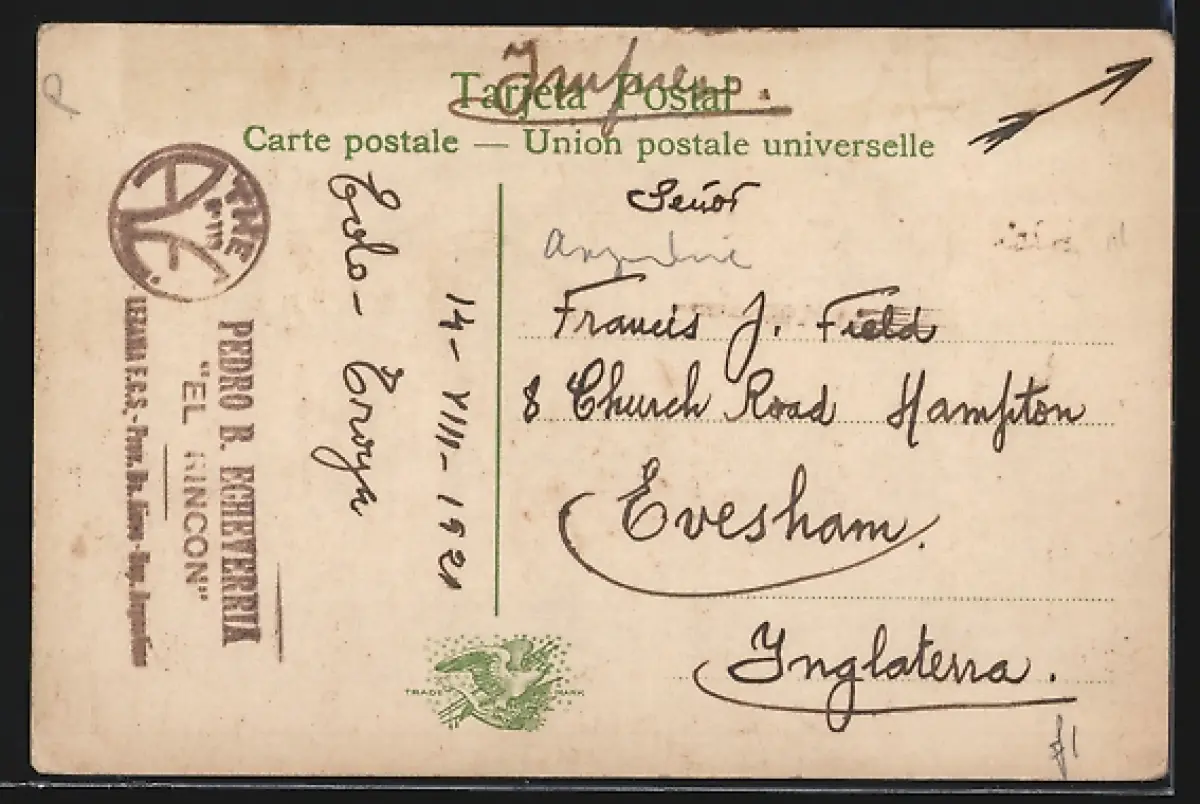 P
Tarjeta Postal
Impreso.
Carte postale — Union postale universelle
THE
PEDRO R. ECHEVERRIA
"EL RINCON"
LEZAMA F.C.S.,- Prov. Bs. Aires - Rep. Argentina
14-VIII-1921
Señor
Francis J. Field
8 Church Road Hampton
Evesham.
Inglaterra.
TRADE MARK